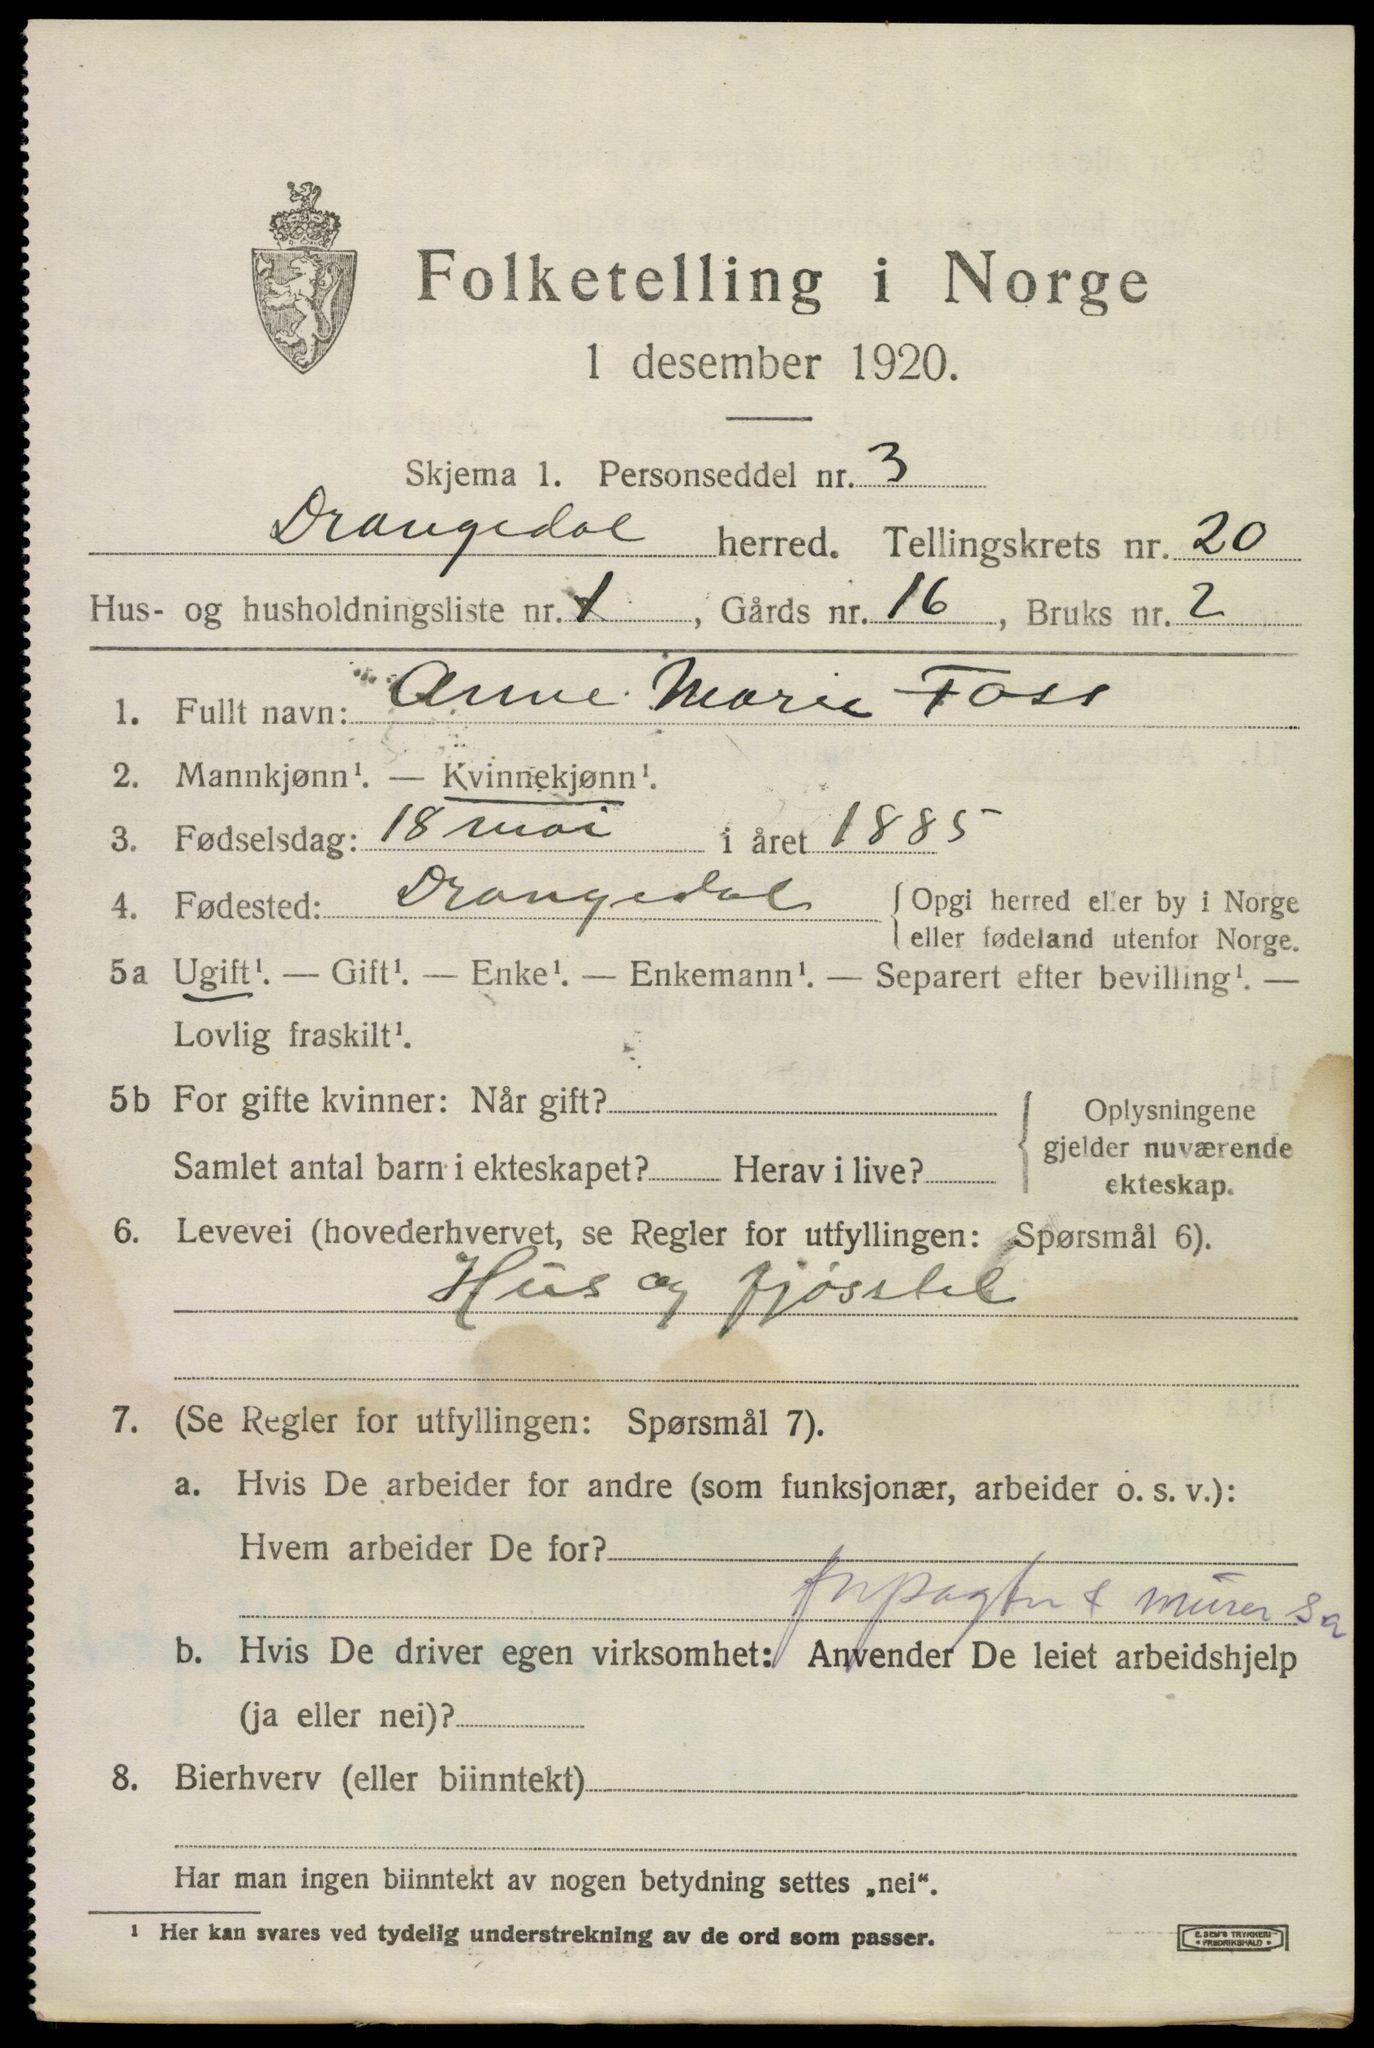 Folketelling i Norge
1 desember 1920.
Skjema 1. Personseddel nr. 3
Drangedal herred. Tellingskrets nr. 20
Hus- og husholdningsliste nr. 1, Gårds nr. 16, Bruks nr. 2
1. Fullt navn: Anne Marie Foss
2. Mannkjønn¹. — Kvinnekjønn¹.
3. Fødselsdag: 18 mai i året 1885
4. Fødested: Drangedal { Opgi herred eller by i Norge
eller fødeland utenfor Norge.
5a Ugift¹. — Gift¹. — Enke¹. — Enkemann¹. — Separert efter bevilling¹. —
Lovlig fraskilt¹.
5b For gifte kvinner: Når gift?
Samlet antal barn i ekteskapet? Herav i live?
Oplysningene
gjelder nuværende
ekteskap.
6. Levevei (hovederhvervet, se Regler for utfyllingen: Spørsmål 6).
Hus og fjøsstel
7. (Se Regler for utfyllingen: Spørsmål 7).
a. Hvis De arbeider for andre (som funksjonær, arbeider o. s. v.):
Hvem arbeider De for?
forpagter & murer
b. Hvis De driver egen virksomhet: Anvender De leiet arbeidshjelp
(ja eller nei)?
8. Bierhverv (eller biinntekt)
Har man ingen biinntekt av nogen betydning settes „nei“.
¹ Her kan svares ved tydelig understrekning av de ord som passer.
E. SEM'S TRYKKERI
FREDRIKSHALD